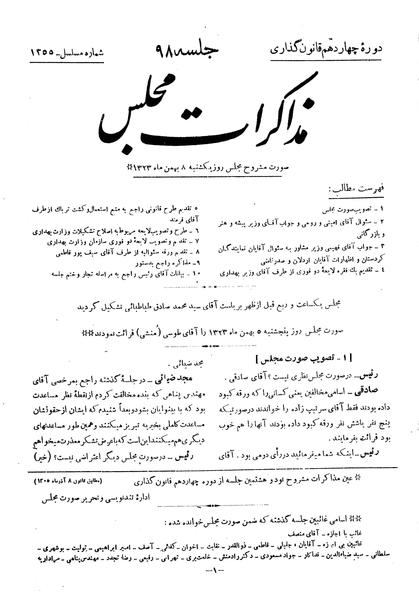 دورهٔ چهاردهم قانون گذاری
جلسه ۹۸
شماره مسلسل - ۱۲۵۵
مذاکرات مجلس
صورت مشروح مجلس روز یکشنبه ۸ بهمن ماه ۱۳۲۳
فهرست مطالب:
۱ - تصویب صورت مجلس
۲ - سئوال آقای امینی و رومی و جواب آقای وزیر پیشه و هنر و بازرگانی
۳ - جواب آقای فهیمی وزیر مشاور به سئوال آقایان نمایندگان کردستان و اظهارات آقایان اردلان و صدرقاضی
۴ - تقدیم یک فقره لایحه دو فوری از طرف آقای وزیر بهداری
۵ تقدیم طرح قانونی راجع به منع استعمال و کشت تریاک از طرف آقای فرمند
۶ - طرح و تصویب لایحه مربوط به اصلاح تشکیلات وزارت بهداری
۷ - تقدیم و تصویب لایحهٔ دو فوری سازمان وزارت بهداری
۸ - تقدیم ورقه سئوالیه از طرف آقای سیف پور فاطمی
۹ - مذاکره راجع بدستور
۱۰ - بیانات آقای رئیس راجع به مراسله تجار و ختم جلسه
مجلس یکساعت و ربع قبل از ظهر بریاست آقای سید محمد صادق طباطبائی تشکیل گردید
صورت مجلس روز پنجشنبه ۵ بهمن ماه ۱۳۲۳ را آقای طوسی (منشی) قرائت نمودند
[ ۱ - تصویب صورت مجلس ]
رئیس - در صورت مجلس نظری نیست؟ آقای صادقی.
صادقی - اسامی مخالفین یعنی کسانی را که ورقه کبود
داده بودند فقط آقای سرتیپ زاده را خواندند در صورتیکه
پنج نفر باشش نفر ورقه کبود داده بودند آنها را هم خوب
بود قرائت بفرمایند.
رئیس - اینکه شما میفرمائید در رأی دومی بود. آقای
مجد ضیائی.
مجد ضیائی - در جلسهٔ گذشته راجع بمرخصی آقای
مهندس پناهی که بنده مخالفت کردم از نقطهٔ نظر مساعدت
بود که با بینوایان بشود بعداً شنیدم که ایشان از حقوقشان
مساعدت کاملی بخیریه تبریز میکنند و همین طور مساعدتهای
دیگری هم میکنند این است که با عرض تشکر معذرت میخواهم
رئیس - در صورت مجلس دیگر اعتراضی نیست؟ (خیر)
عین مذاکرات مشروح نود و هشتمین جلسه از دوره چهاردهم قانون گذاری
(مطابق قانون ۸ آذرماه ۱۳۰۵)
ادارهٔ تندنویسی و تحریر صورت مجلس
اسامی غائبین جلسه گذشته که ضمن صورت مجلس خوانده شده:
غائب با اجازه - آقای منصف
غائبین بی اجازه - آقایان: جلیلی - فاطمی - ذوالقدر - نقابت - اخوان - کفائی - آصف - امیر ابراهیمی - تولیت - بوشهری -
سلطانی - سید ضیاءالدین - فداکار - جواد مسعودی - دکتر رادمنش - خلعتبری - تهرانی - رفیعی - رضا تجدد - مهندس پناهی - صمداویه
- ۱ -